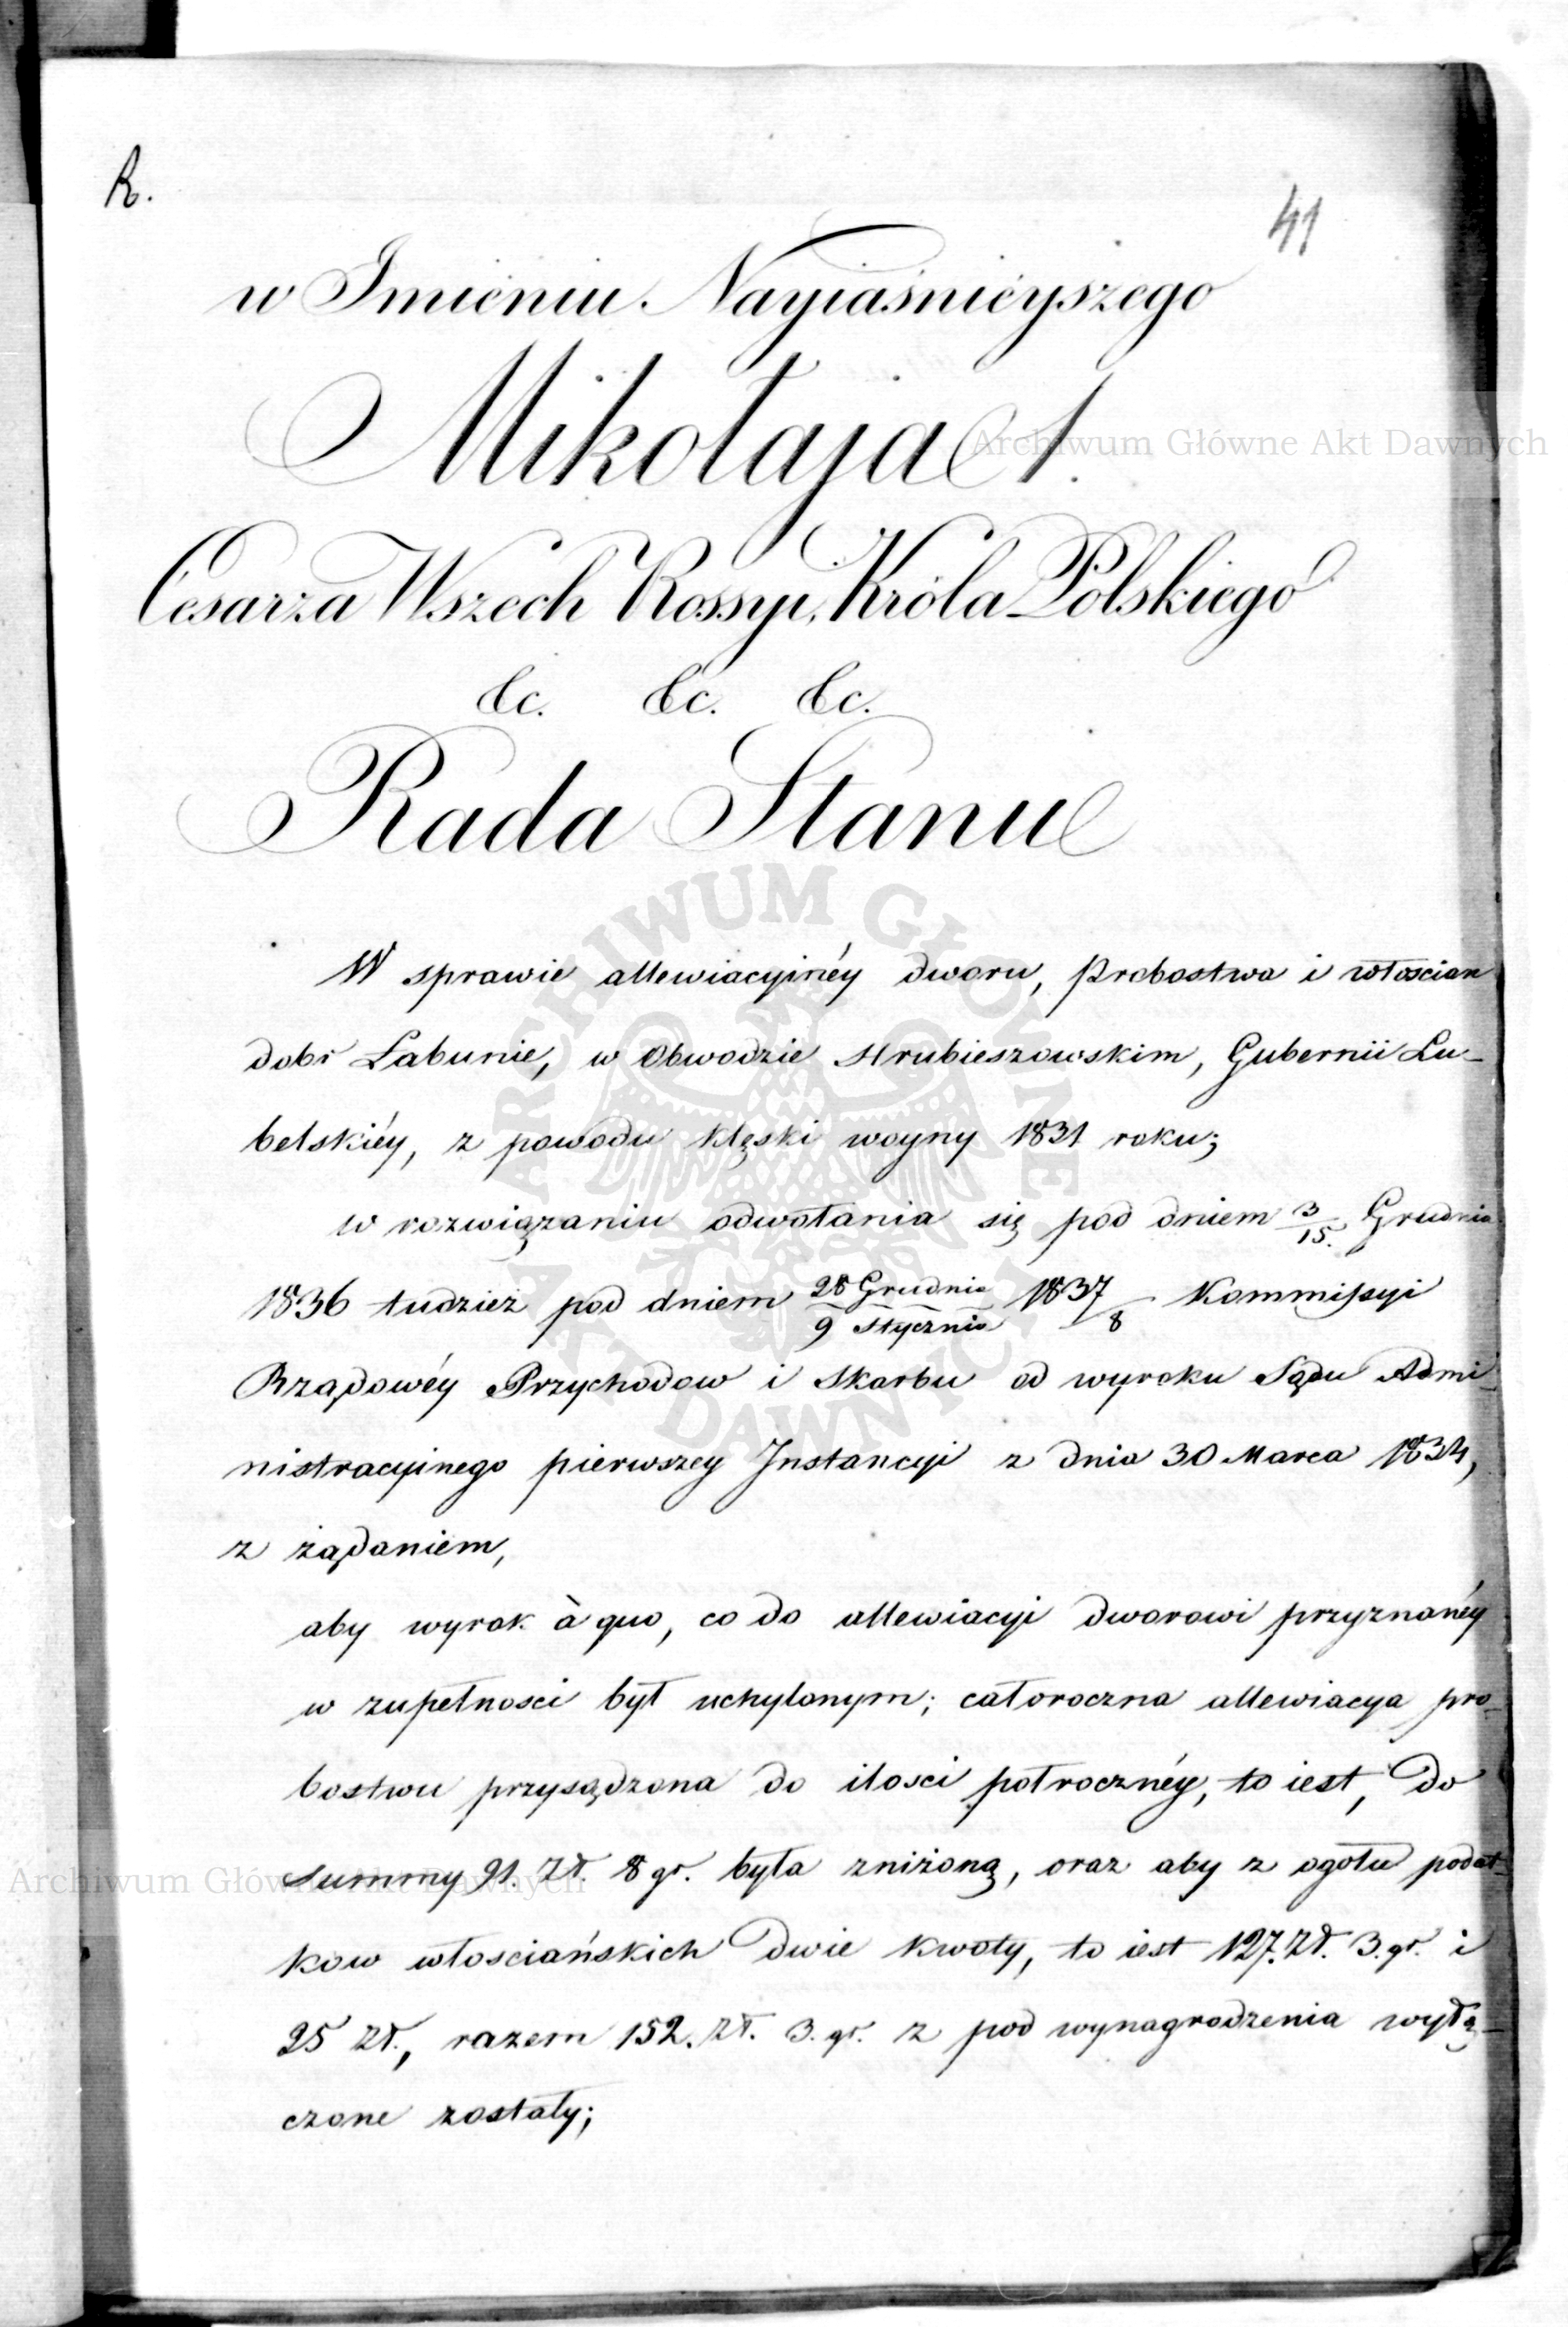 R.
41
w Imieniu Nayiaśnieyszego
Mikołaja 1.
Cesarza Wszech Rossyi, Króla Polskiego
&c. &c. &c.
Rada Stanu
W sprawie allewiacyinéy dworu, Probostwa i włościan
dobr Łabunie, w Obwodzie Hrubieszowskim, Gubernii Lu-
belskiéy, z powodu klęski woyny 1831 roku;
w rozwiązaniu odwołania się pod dniem 3/15. Grudnia
1836 tudzież pod dniem 28 Grudnia/9 Stycznia 1837/8 Kommissyi
Rządowéy Przychodow i Skarbu od wyroku Sądu Admi-
nistracyinego pierwszey Instancyi z dnia 30 Marca 1834,
z żądaniem,
aby wyrok à quo, co do allewiacyi dworowi przyznanéy
w zupełnosci był uchylonym; całoroczna allewiacya pro-
bostwu przysądzona do ilosci połrocznéy, to iest, do
summy 91. zł. 8 gr. była zniżoną, oraz aby z ogołu podat-
kow włosciańskich dwie kwoty, to iest 127. zł. 3. gr. i
25 zł., razem 152. zł. 3. gr. z pod wynagrodzenia wyłą-
czone zostały;
Archiwum Główne Akt Dawnych
Archiwum Główne Akt Dawnych
ARCHIWUM GŁÓWNE AKT DAWNYCH